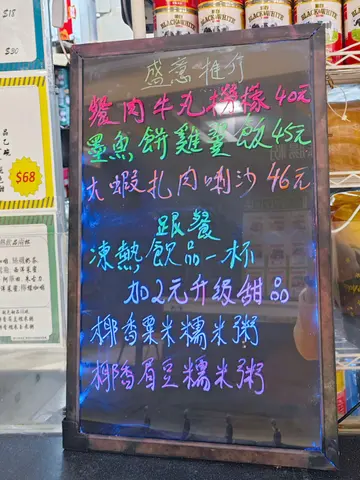 BLACK&WHITE
BLACK&WHITE
BLACK&WHITE
$18
$30
$68
盛意推介
餐肉牛丸檸檬40元
墨魚餅雞翼飯45元
大蝦扎肉喇沙46元
跟餐
凍熱飲品一杯
加2元升級甜品
椰香粟米糯米粥
椰香眉豆糯米粥